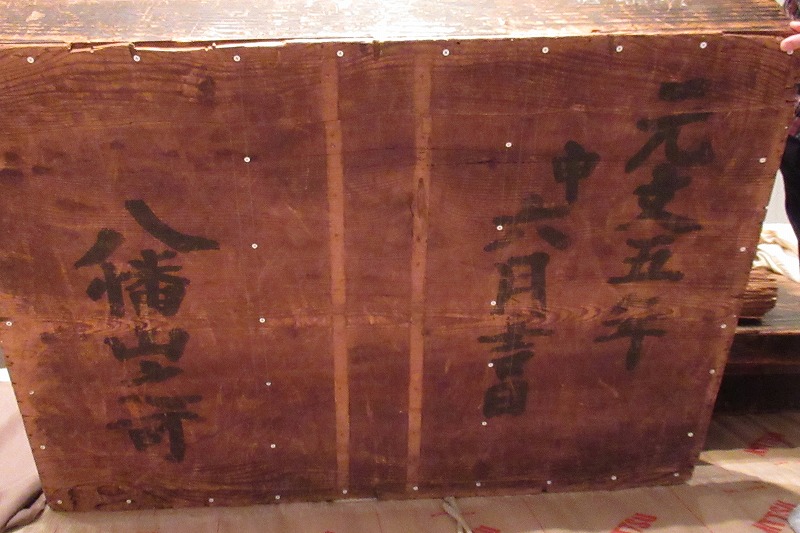 元文五年
申六月吉日
八幡山之